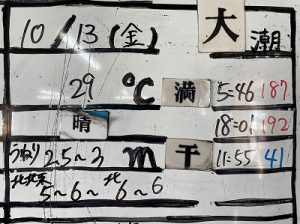 10/13(金) 大潮
29 ℃ 満 5:46 187
晴 18:01 192
うねり 2.5~3 m 干 11:55 41
北北東 5~6~ 北 6~6